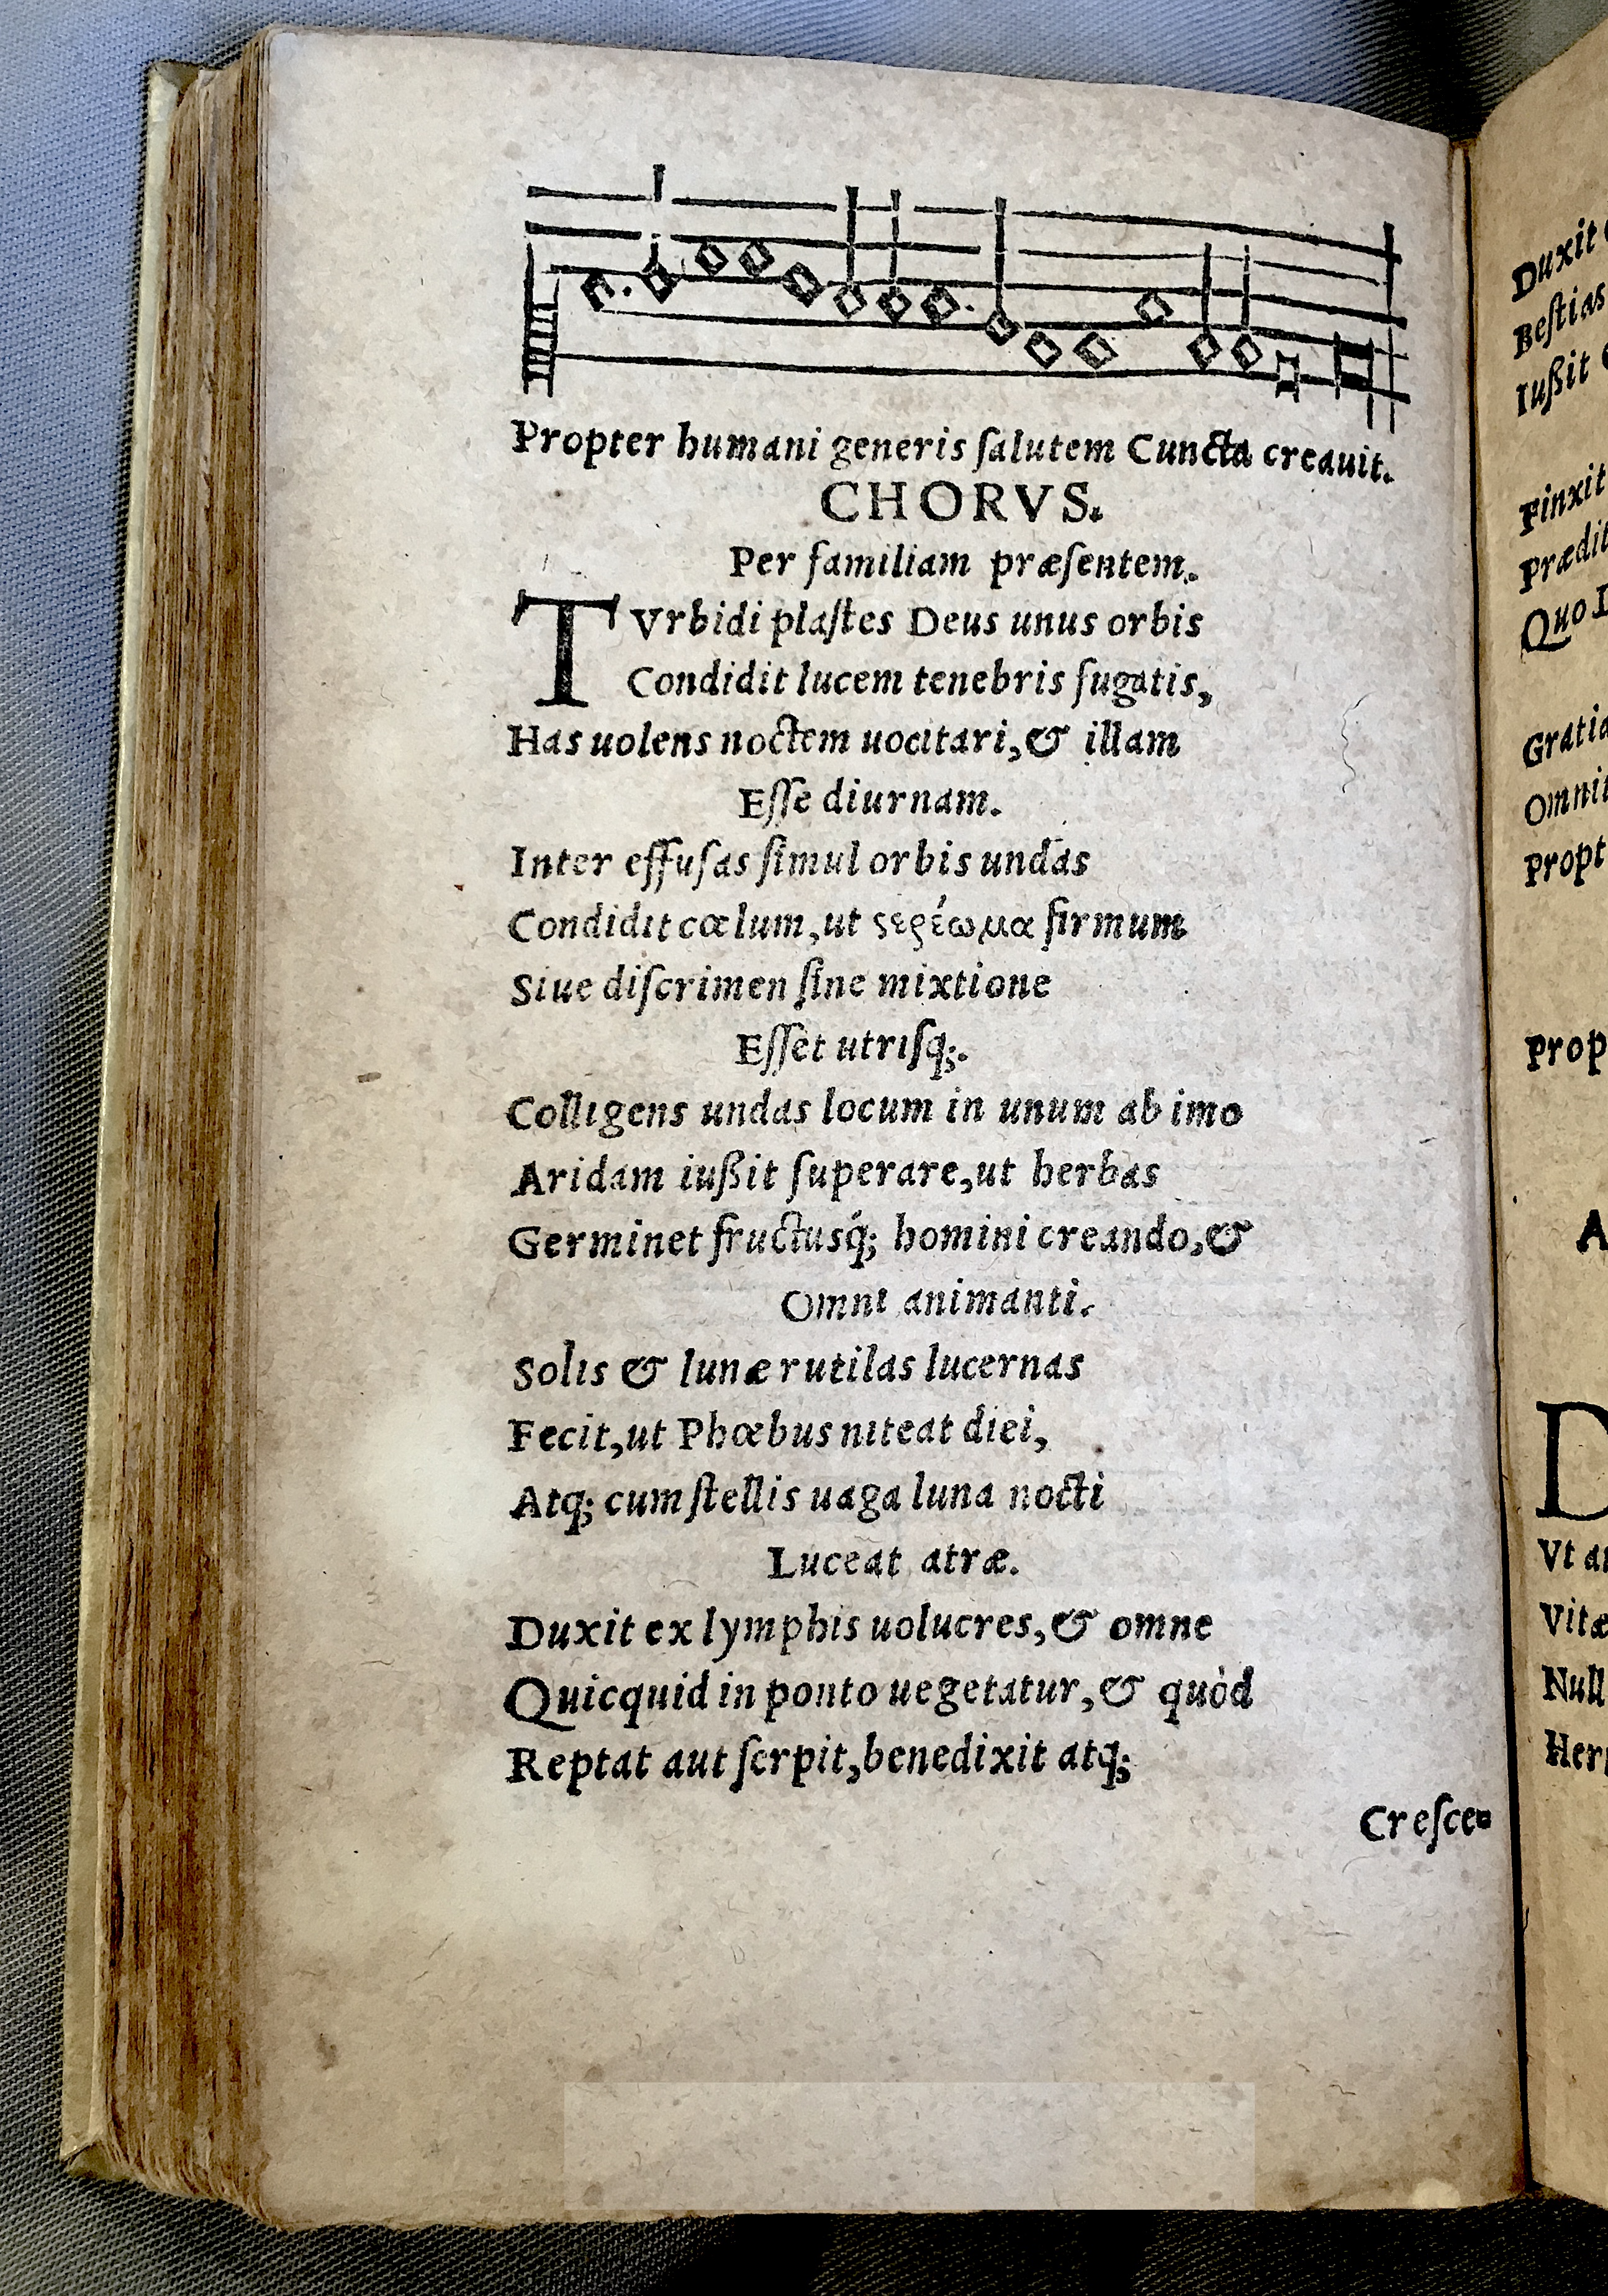 Propter humani generis ſalutem Cuncta creauit.
CHORVS.
Per familiam præſentem.
TVrbidi plaſtes Deus unus orbis
Condidit lucem tenebris fugatis,
Has uolens noctem uocitari, & illam
Eſſe diurnam.
Inter effuſas ſimul orbis undas
Condidit cœlum, ut ςερέωμα firmum
Siue diſcrimen ſine mixtione
Eſſet utriſq;.
Colligens undas locum in unum ab imo
Aridam iußit ſuperare, ut herbas
Germinet fructusq́; homini creando, &
Omni animanti.
Solis & lunæ rutilas lucernas
Fecit, ut Phœbus niteat diei,
Atq; cum ſtellis uaga luna nocti
Luceat atræ.
Duxit ex lymphis uolucres, & omne
Quicquid in ponto uegetatur, & quòd
Reptat aut ſerpit, benedixit atq;
Creſce-
Duxit
Beſtias
Iußit
Finxit
Prædit
Quo
Gratia
Omni
Propt
Prop
A
D
Vt
Vitæ
Null
Her